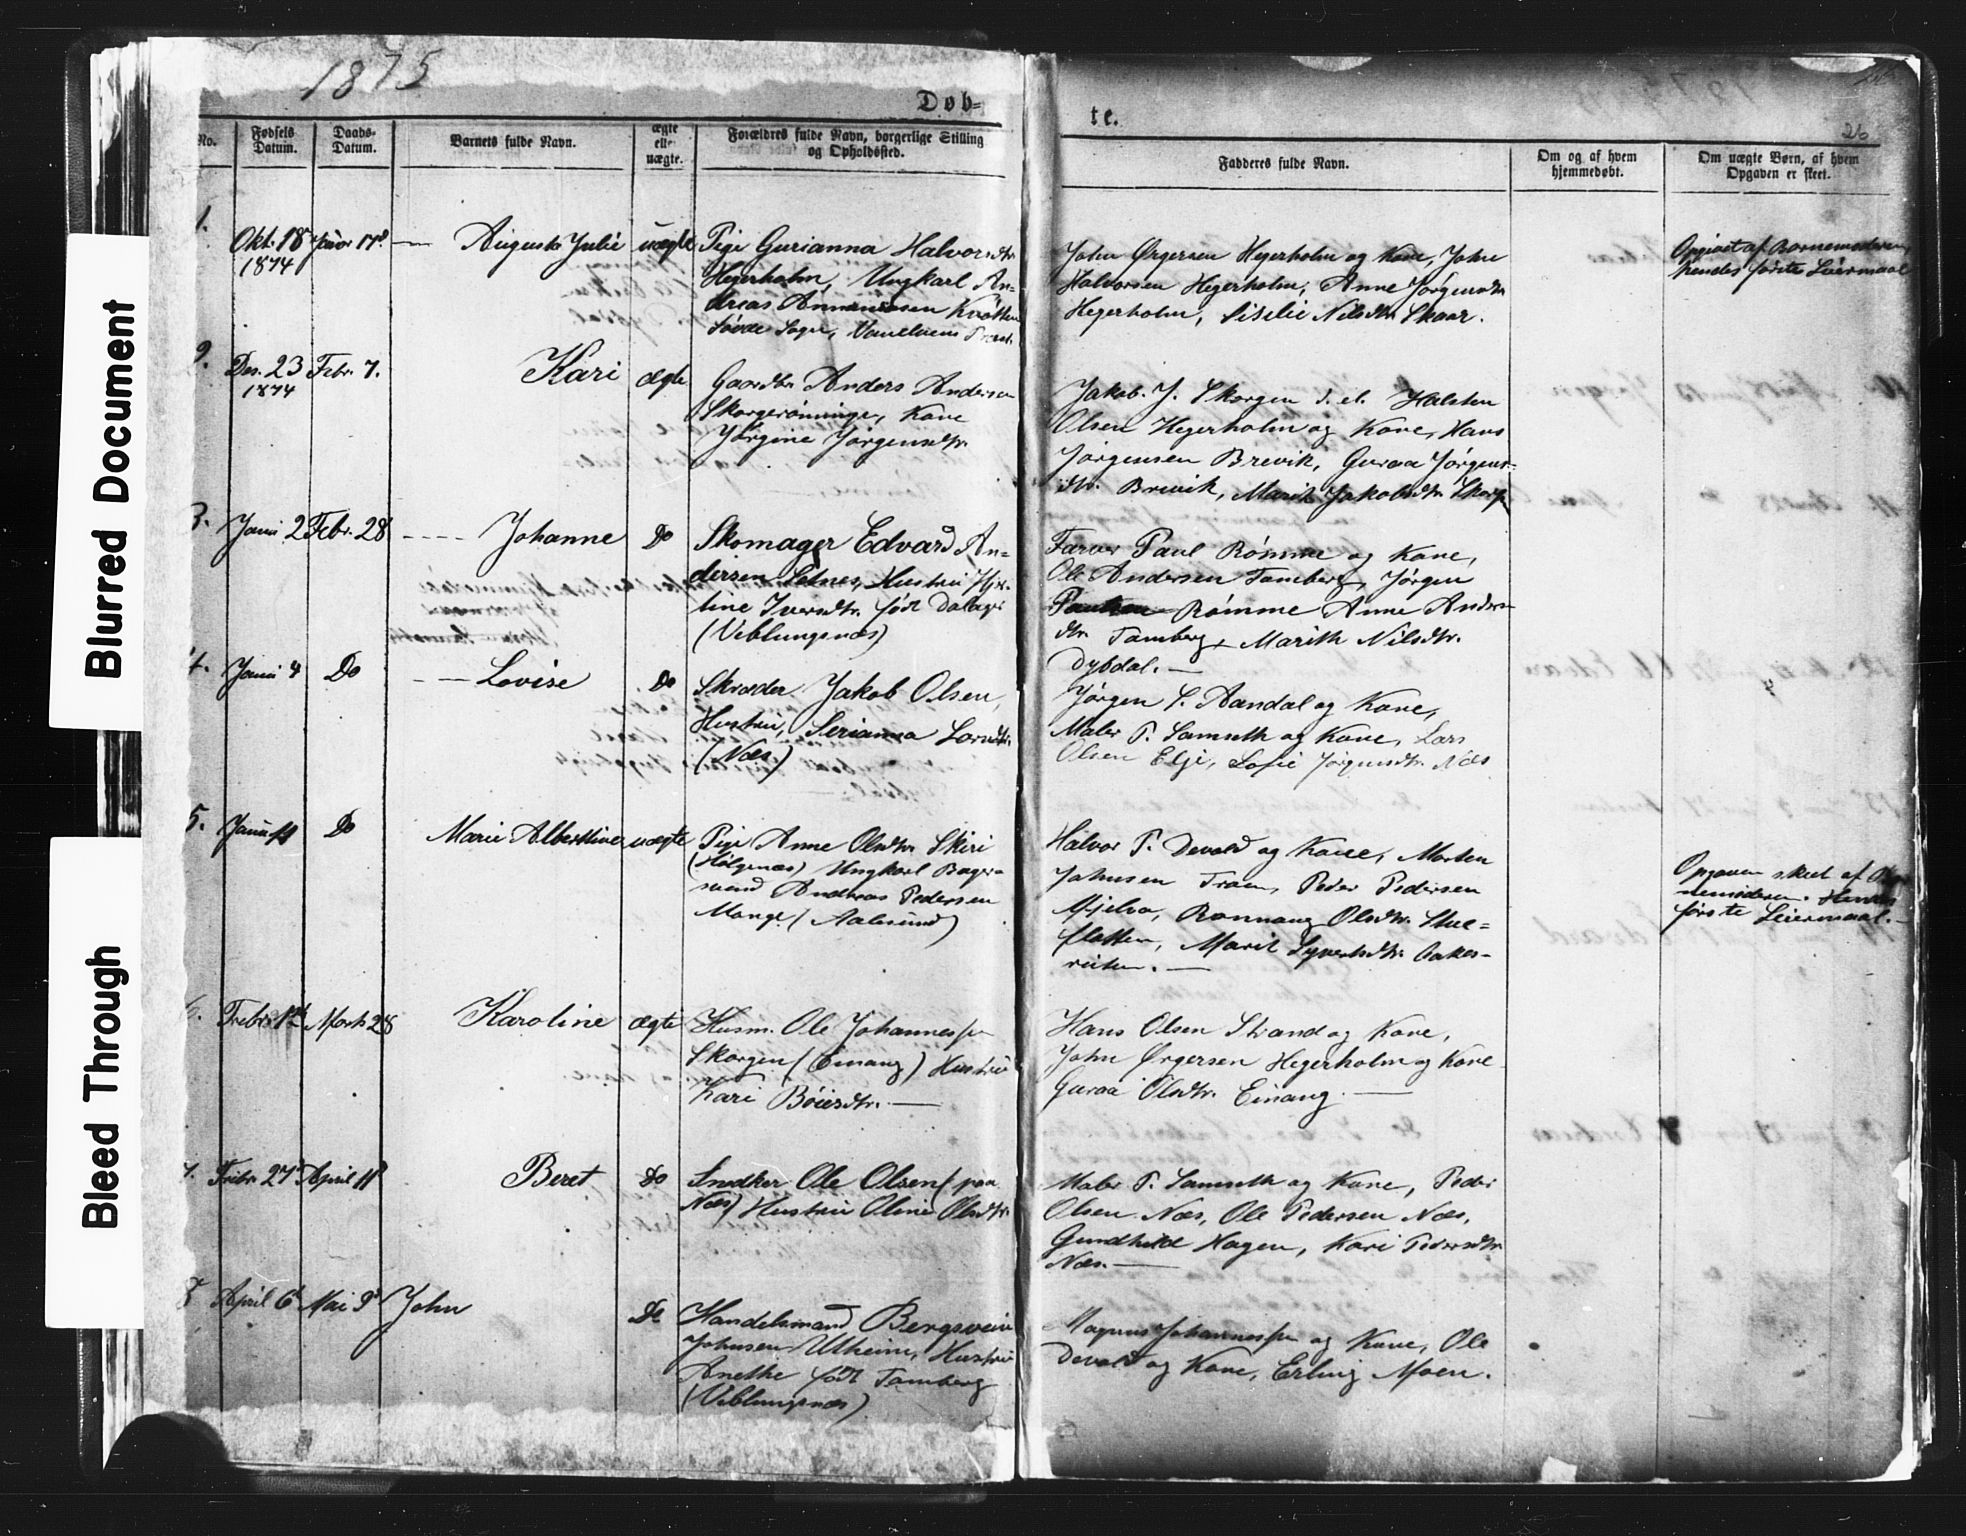 1875
Døb-
te.
26
No.
Fødsels Datum.
Daabs-Datum.
Barnets fulde Navn.
ægte eller uægte.
Forældres fulde Navn, borgerlige Stilling og Opholdssted.
Fadderes fulde Navn.
Om og af hvem hjemmedøbt.
Om uægte Børn, af hvem Opgaven er skeet.
Blurred Document
Bleed Through
1.
Okt. 18 Januar 17de — Augusta Julie uægte Pige Gurianna Halvorsdtr
1874
Hegerholm, Ungkarl An-
dreas Annaniasen
Søvde Sogn, Vanelvens Præst.
John Ørgersen Hegerholm og Kone, John
Halvorsen Hegerholm, Anne Jørgensdtr
Hegerholm, Siselie Nilsdtr Skaar.
Opgivet af Barnemoderen,
hendes første Leiermaal
2.
Des. 23 Febr. 7. Kari ægte Gaardbr. Anders Andersen
1874
Skorgerønningen, Kone
Jørgine Jørgensdtr.
Jakob J. Skorgen d. el. Halsten
Olsen Hegerholm og Kone, Hans
Jørgensen Brevik, Guraa Jørgens-
dtr. Brevik, Marit Jakobsdtr.
3.
Janu 2 Febr. 28 - - - - Johanne Do Skomager Edvard An-
dersen Setnes, Hustru
line Iversdtr. født
(Veblungsnæs)
Farver Paul Rømme og Kone,
Ole Andersen Tamberg, Jørgen
Rømme Anne Anders-
dtr. Tamberg, Marith Nilsdtr.
Dybdal. —
4.
Janu 4 Do - — Lovise Do Skræder Jakob Olsen,
Hustru, Serianna Larsdtr.
(Næs)
Jørgen S. Aandal og Kone,
Maler P. Samseth og Kone, Lars
Olsen Elje, Jørgensdtr. Næs
5.
Do Marie Albertine uægte Pige Anne Olsdtr. Skiri
(Holgenæs) Ungkarl Bager-
svend Andreas Pedersen
(Aalesund)
Halvor T. Devold og Kone, Morten
Johnsen Troen, Peder Pedersen
Mjelva, Rannaug Olsdtr. Stue-
flotten, Marit Syvertsdtr.
Opgaven skeet af Bar-
nemoderen. Hendes
første Leiermaal. —
6.
Marts 28 Karoline ægte Husm. Ole Johannessen
Skorgen (Einang) Hustru
Kari Bøiesdtr. —
Hans Olsen Strand og Kone,
John Ørgersen Hegerholm og Kone
Guraa Olsdtr. Einang. —
7.
Febr. 27 April 11 Beret Do Snedker Ole Olsen (paa
Næs) Hustru Oline Olsdtr.
Maler P. Samseth og Kone, Peder
Olsen Næs, Ole Pedersen Næs,
Gundhild Hagen, Kari Pedersdtr.
Næs. —
8
April 6te Mai 9de John Do Handelsmand Bergsvein
Johnsen Utheim, Hustru
Anethe født Tamberg
(Veblungsnæs)
Magnus Johannessen og Kone, Ole
Devold og Kone, Erling Moen.